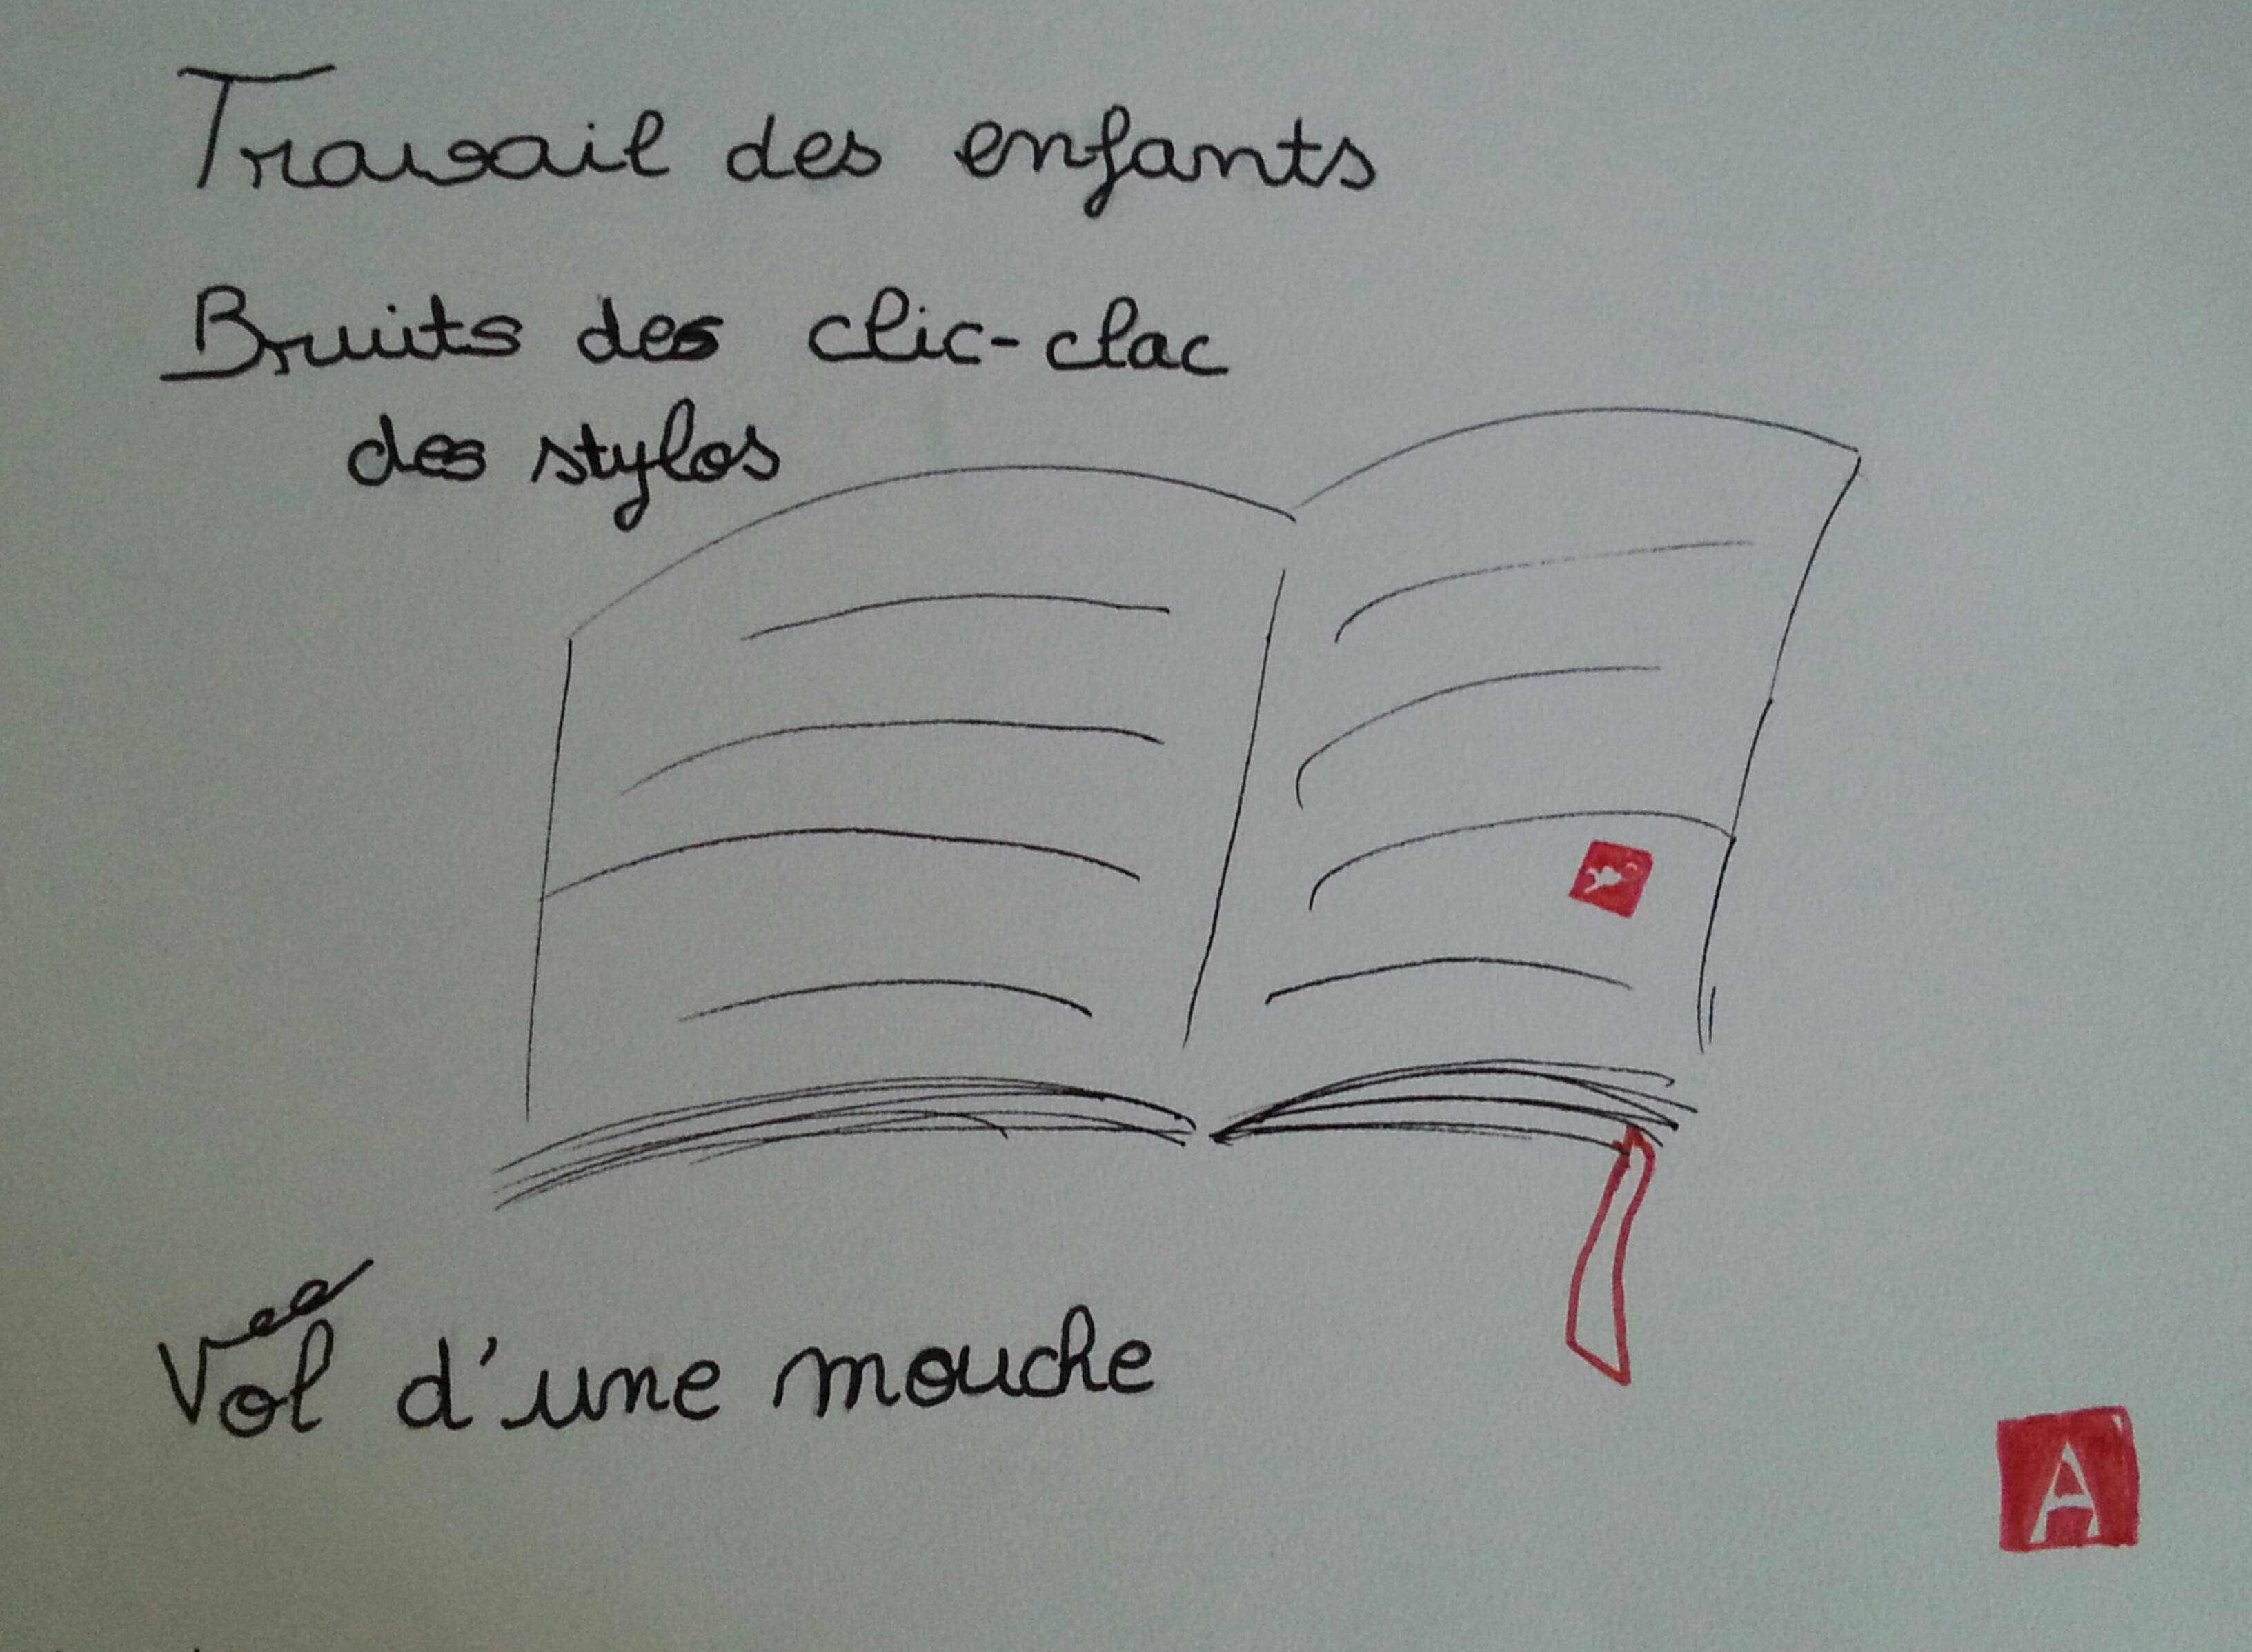 Travail des enfants
Bruits des clic-clac
des stylos
Vol d'une mouche
A